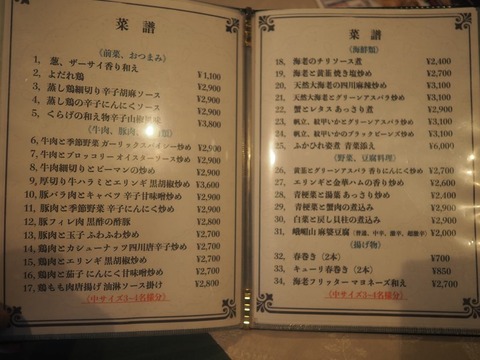 菜 譜
《前菜、おつまみ》
1, 葱、ザーサイ香り和え
2, よだれ鶏 ¥1,100
3, 蒸し鶏細切り辛子胡麻ソース ¥2,900
4, 蒸し鶏の辛子にんにくソース ¥2,900
5, くらげの和え物辛子山椒風味 ¥3,800
《牛肉、豚肉、類》
6, 牛肉と季節野菜 ガーリックスパイシー炒め ¥2,900
7, 牛肉とブロッコリーオイスターソース炒め ¥2,900
8, 牛肉細切りとピーマンの炒め ¥2,900
9, 厚切り牛ハラミとエリンギ 黒胡椒炒め ¥3,600
10, 豚バラ肉とキャベツ 辛子甘味噌炒め ¥2,900
11, 豚肉と季節野菜 辛子にんにく炒め ¥2,900
12, 豚フィレ肉 黒酢の酢豚 ¥2,900
13, 豚肉と玉子 ふわふわ炒め ¥2,700
14, 鶏肉とカシューナッツ四川唐辛子炒め ¥2,700
15, 鶏肉とエリンギ 黒胡椒炒め ¥2,700
16, 鶏肉と茄子 にんにく甘味噌炒め ¥2,700
17, 鶏もも肉唐揚げ 油淋ソース掛け ¥2,800
(中サイズ3~4名様分)
菜 譜
《海鮮類》
18, 海老のチリソース煮 ¥2,400
19, 海老と黄韮 焼き塩炒め ¥2,700
20, 天然大海老の四川麻辣炒め ¥3,100
21, 天然大海老とグリーンアスパラ炒め ¥3,100
22, 蟹とレタス あっさり煮 ¥2,900
23, 帆立、紋甲いかとグリーンアスパラ炒め ¥3,100
24, 帆立、紋甲いかのブラックビーンズ炒め ¥3,100
25, ふかひれ姿煮 青菜添え ¥6,000
《野菜、豆腐料理》
26, 黄韮とグリーンアスパラ 香りにんにく炒め ¥2,700
27, エリンギと金華ハムの香り炒め ¥2,600
28, 青梗菜と湯葉 あっさり炒め ¥2,400
29, 青梗菜と蟹肉の煮込み ¥2,900
30, 白菜と戻し貝柱の煮込み ¥2,900
31, 峨嵋山 麻婆豆腐 (普通、中辛、激辛、超激辛) ¥2,000
《揚げ物》
32, 春巻き (2本) ¥700
33, キューリ春巻き (2本) ¥850
34, 海老フリッター マヨネーズ和え ¥2,700
(中サイズ3~4名様分)